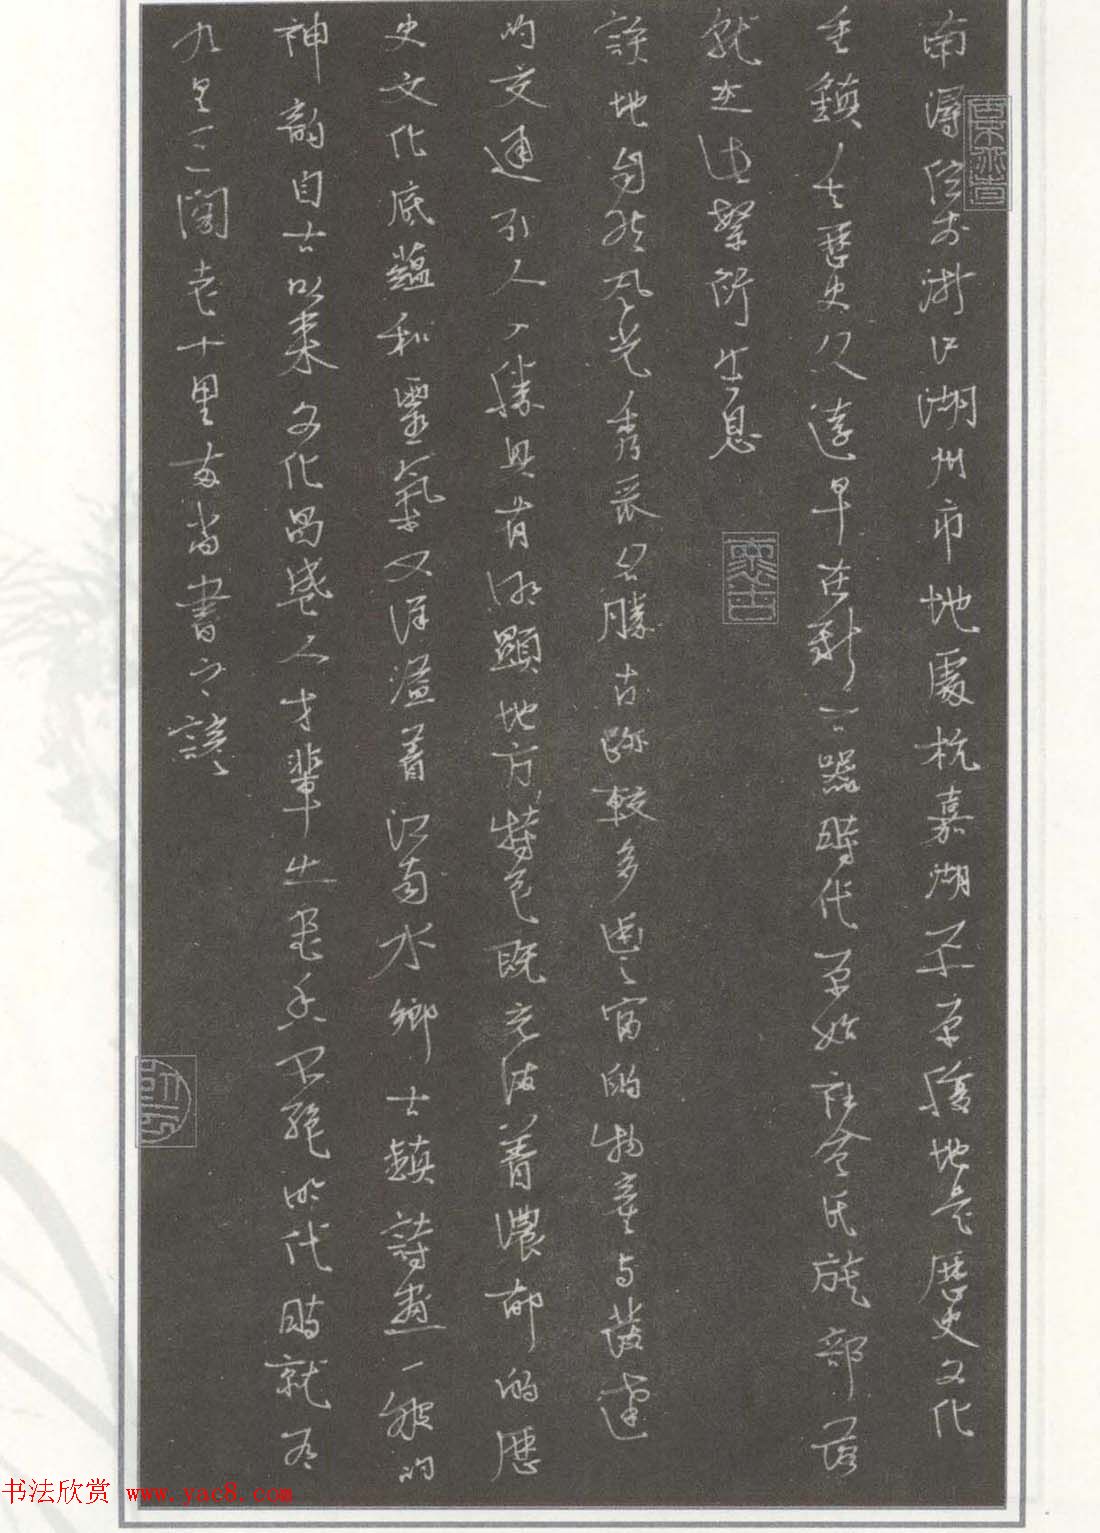 南潯位於浙江湖州市地處杭嘉湖平原腹地是歷史文化
重鎮人文歷史久遠早在新石器時代原始社會氏族部落
就在此繁衍生息
該地自然風光秀麗名勝古跡較多豐富的物產与發達
的交通引人入勝具有明顯地方特色既充滿着濃郁的歷
史文化底蘊和靈氣又洋溢着江南水鄉古鎮詩畫一般的
神韻自古以來文化昌盛人才輩出書香不絕明代時就有
九里三閣老十里兩尚書之諺
书法欣赏 www.yac8.com